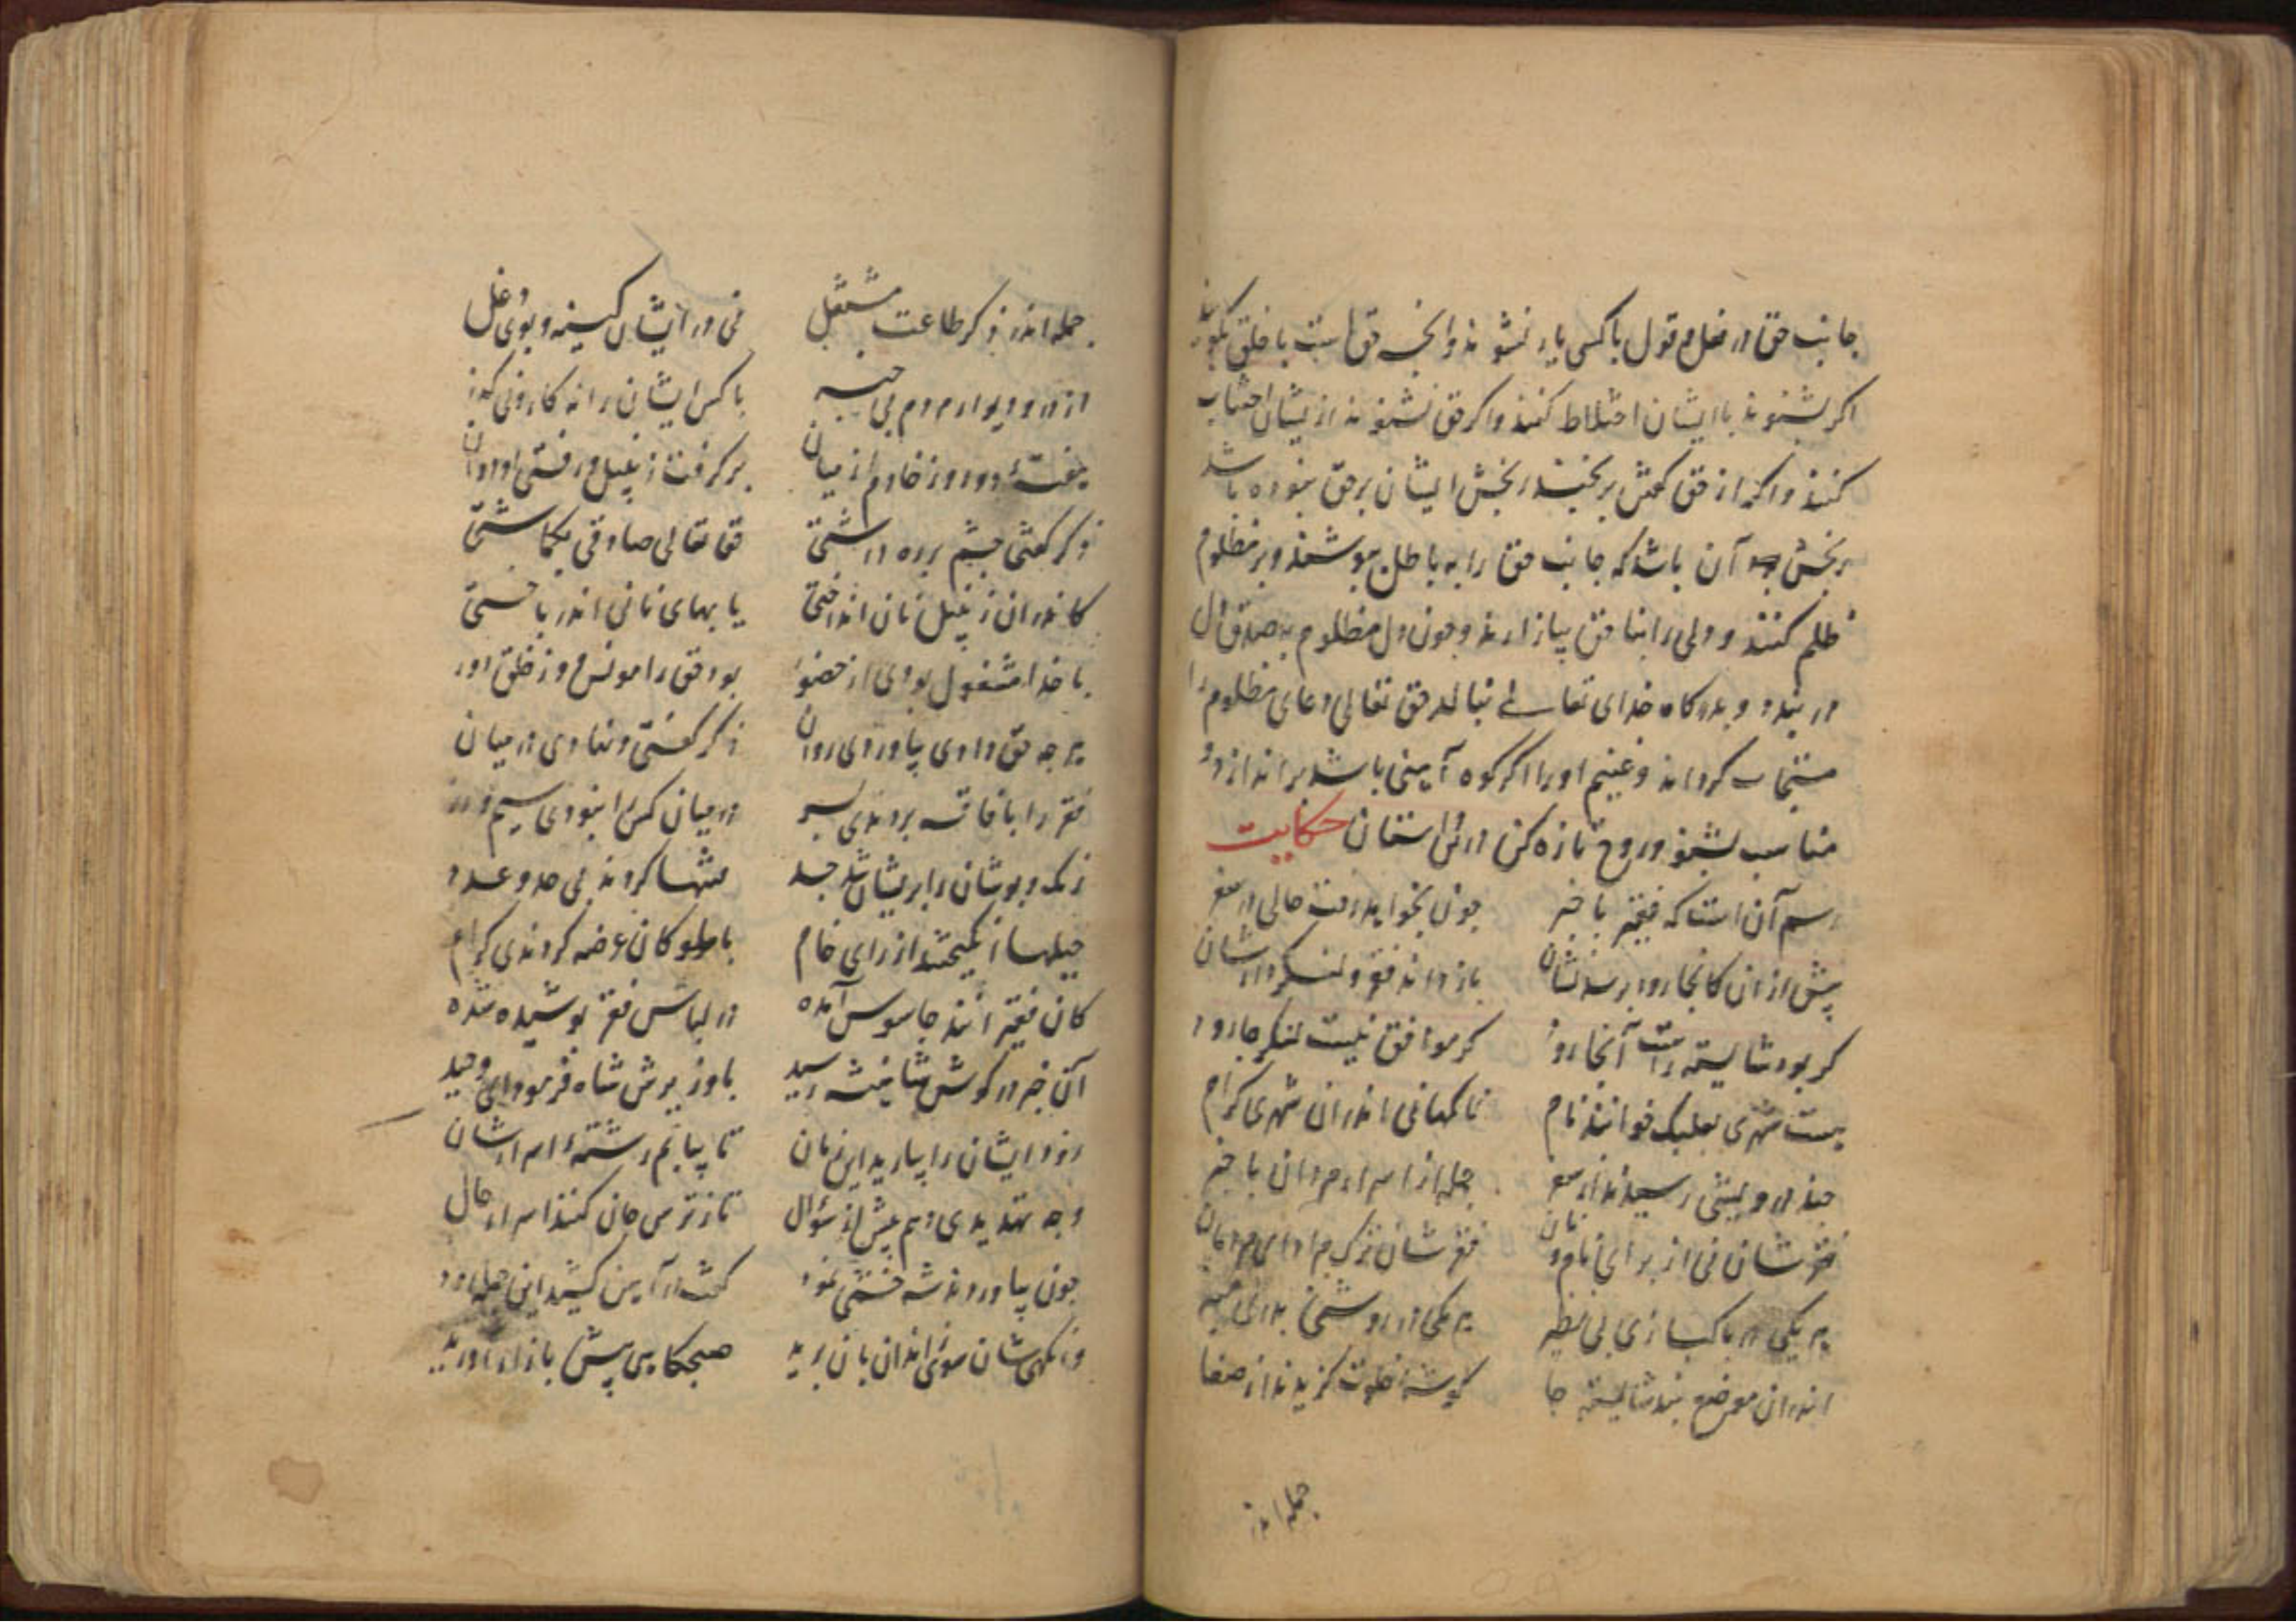 جانب حق در فعل و قول با کسی یار نشوند و آنچه حق است با خلق بگویند
اگر بشنوند با ایشان اختلاط کنند و اگر حق نشنوند از ایشان اجتناب
کنند و آنکه از حق گفتن برنجند رنجش ایشان بر حق نبوده باشد
رنجش آن باشد که جانب حق را به باطل بپوشند و بر مظلوم
ظلم کنند و دلی را بناحق بیازارند و چون دل مظلوم به صدق
در بندد و بدرگاه خدای تعالی بنالد حق تعالی دعای مظلوم را
مستجاب گرداند و غنیم او را اگر کوه آهنی باشد براندازد
مناسب بشنو و روح تازه کن در این داستان حکایت
رسم آن است که فقیر با خبر چون بخواهد رفت حالی در سفر
پیش از آن کانجا رود پرسد نشان باز داند فقر و لنگردارشان
گر بود شایسته راست آنجا رود گر موافق نیست لنگر جا رود
هست شهری بعلبک خوانند نام ناگهانی اندر آن شهری کرام
چند درویشی رسیدند از سفر جمله از اسرار مردان با خبر
فقرشان نی از برای نام و نان فقرشان ترک مراد
هر یکی در پاکبازی بی نظیر هر یکی در روشنی بدر منیر
اندران موضع بند شایسته جا گوشه خلوت گزیدند از صفا
جمله اندر
جمله اندر ذکر طاعت مشتغل نی در ایشان کینه و بوی غل
از در و دیوار مردم بی خبر با کس ایشان را نه کار و نی گذر
هفته دو روز خادم از میان برگرفت زنبیل و رفتی
ذکر گفتی چشم بر ره داشتی حق تعالی صادقی بگماشتی
کاندران زنبیل نان انداختی یا بهای نانی اندر باختی
با خدا مشغول بودی از حضور بود حق را مونس و ز خلق دور
هر چه حق دادی بیاوردی روان ذکر گفتی و نهادی در میان
فقر را با فاقه بردندی بسر در میان کس را نبودی سیم و زر
زنگ و بوشان را بریشان شد حسد متهما کردند بی حد و عدد
حیلها انگیختند از رای خام با ملوکان عرضه کردندی کرام
کان فقیرانند جاسوس آمده در لباس فقر پوشیده شده
آن خبر در گوش شاهنشه رسید با وزیرش شاه فرمود ای وحید
زود ایشان را بیارید این زمان تا بیابم رشته اسرارشان
وجه تهدیدی دهم پیش از سؤال تا ز ترس جان کنند اسرار حال
چون بیاوردند شه خشمی نمود گفت در آهن کشید این جمله زود
وانگهی شان سوی زندان بان برید صبحگاهی پیش باز آورید